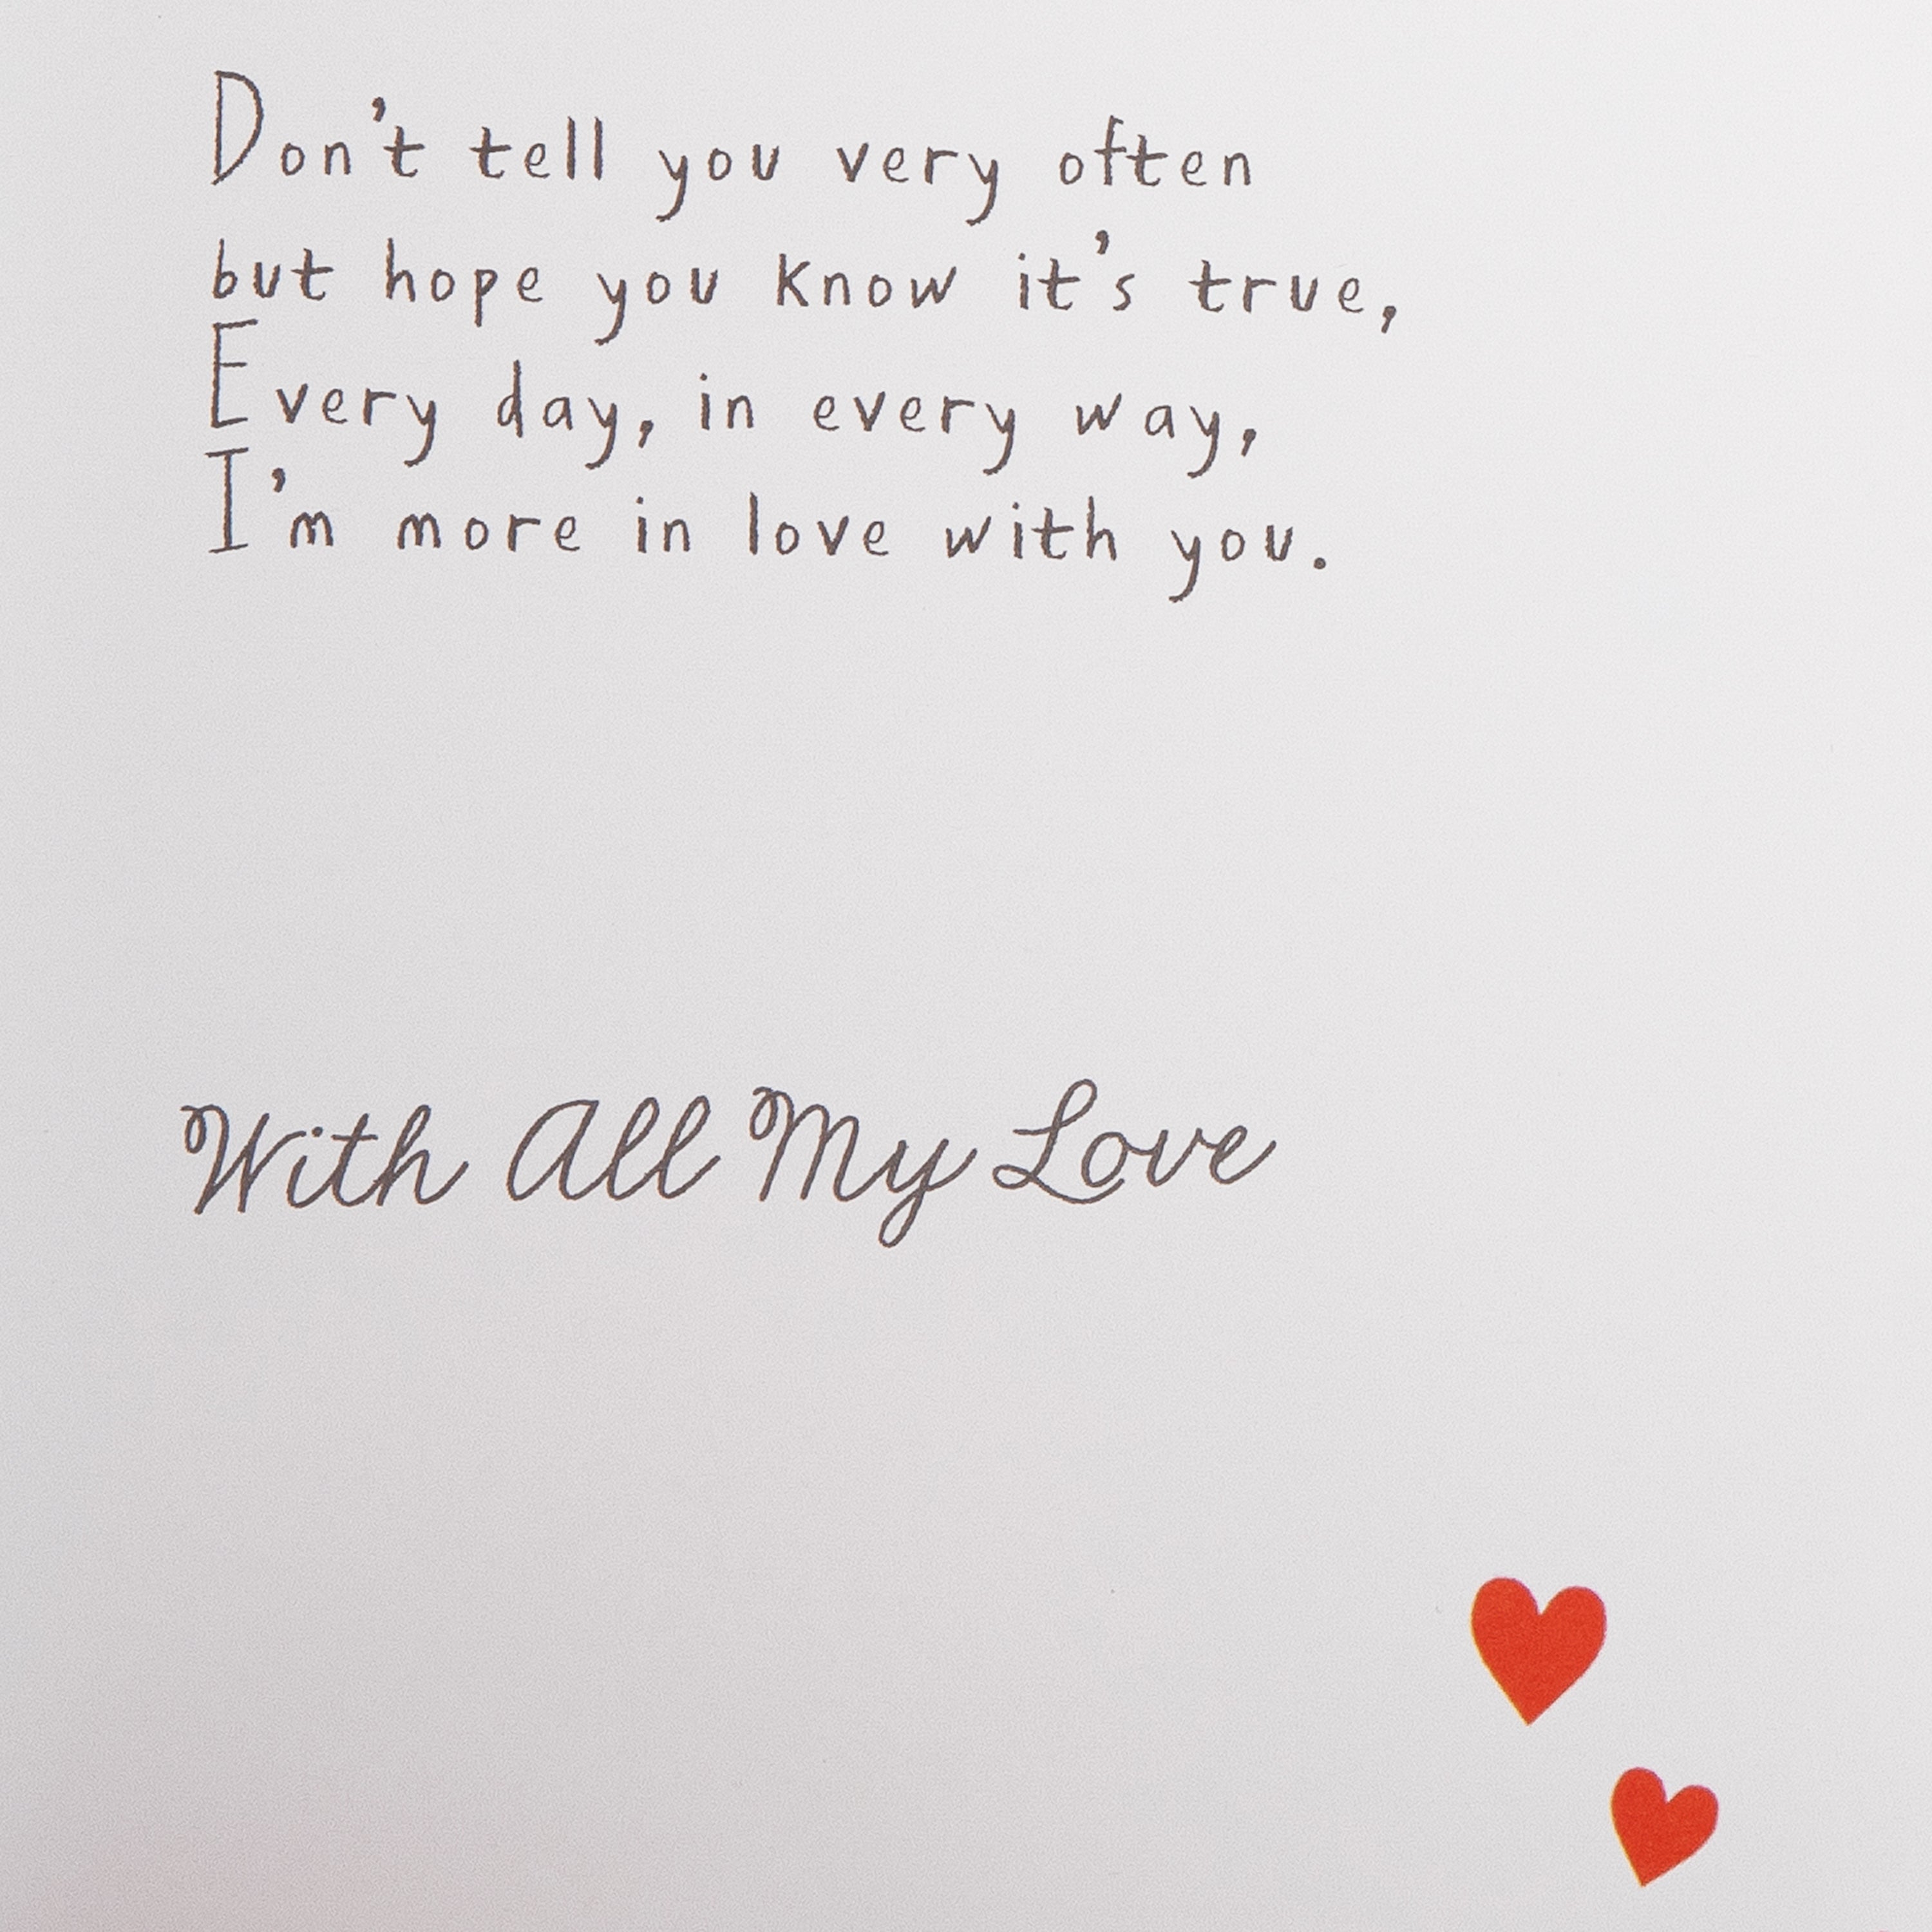 Don't tell you very often
but hope you know it's true,
Every day, in every way,
I'm more in love with you.
With All My Love